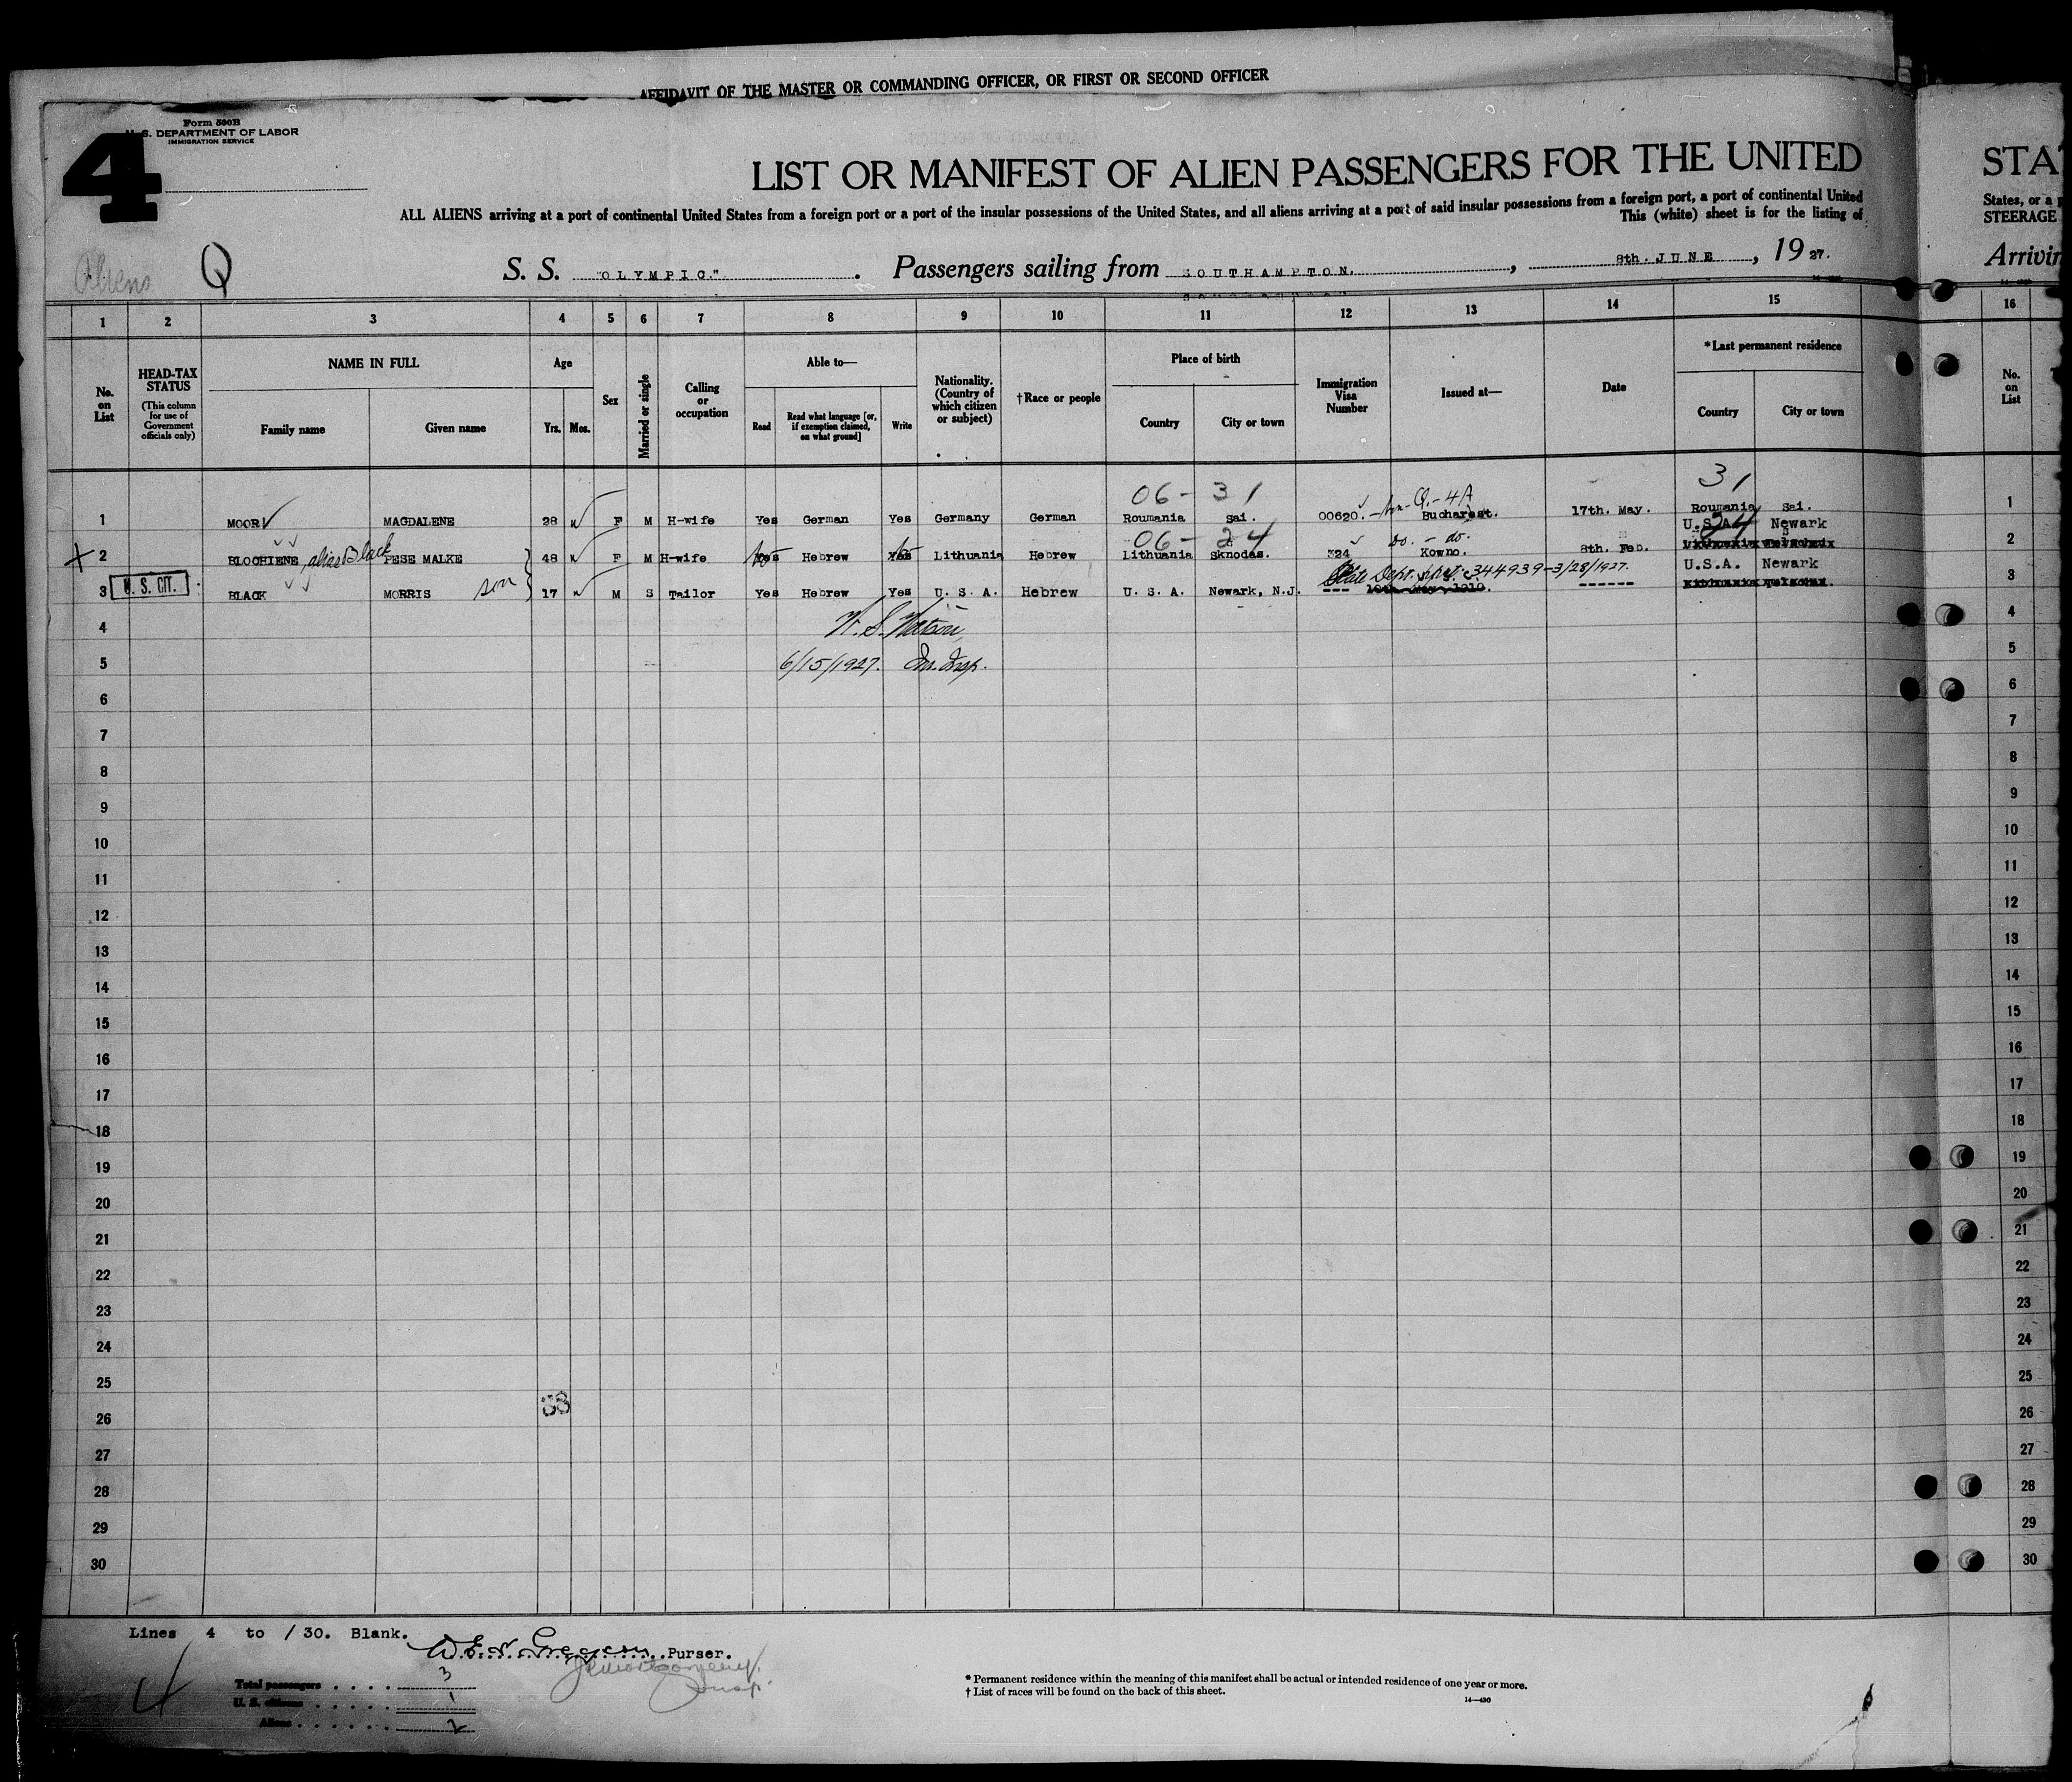 AFFIDAVIT OF THE MASTER OR COMMANDING OFFICER, OR FIRST OR SECOND OFFICER
4
Form 500B
U. S. DEPARTMENT OF LABOR
IMMIGRATION SERVICE
LIST OR MANIFEST OF ALIEN PASSENGERS FOR THE UNITED
STA
ALL ALIENS arriving at a port of continental United States from a foreign port or a port of the insular possessions of the United States, and all aliens arriving at a port of said insular possessions from a foreign port, a port of continental United
States, or a p
This (white) sheet is for the listing of
STEERAGE
Aliens Q
S. S. "OLYMPIC." . Passengers sailing from SOUTHAMPTON. , 8th. JUNE , 19 27.
Arrivin
1 2 3 4 5 6 7 8 9 10 11 12 13 14 15 16
No. on List
HEAD-TAX STATUS (This column for use of Government officials only)
NAME IN FULL
Family name Given name
Age
Yrs. Mos.
Sex
Married or single
Calling or occupation
Able to—
Read Read what language [or, if exemption claimed, on what ground] Write
Nationality. (Country of which citizen or subject)
†Race or people
Place of birth
Country City or town
Immigration Visa Number
Issued at—
Date
*Last permanent residence
Country City or town
No. on List
06 - 31 31
1 MOOR MAGDALENE 28 F M H-wife Yes German Yes Germany German Roumania Sai. 00620. Q.-4A Bucharest. 17th. May. Roumania Sai. 1
06 - 24 U.S.A. 24 Newark
2 BLOCHIENE alias Black PESE MALKE 48 F M H-wife Yes Hebrew Yes Lithuania Hebrew Lithuania Sknodas. 324 do. - do. Kowno. 8th. Feb. 2
State Dept. 344939-3/28/1927. U.S.A. Newark
3 U. S. CIT. BLACK MORRIS son 17 M S Tailor Yes Hebrew Yes U. S. A. Hebrew U. S. A. Newark, N.J. --- 10th May 1910. ------ 3
4 W. S. Watson 4
5 6/15/1927. Im. Insp. 5
6 6
7 7
8 8
9 9
10 10
11 11
12 12
13 13
14 14
15 15
16 16
17 17
18 18
19 19
20 20
21 21
22 22
23 23
24 24
25 25
26 26
27 27
28 28
29 29
30 30
Lines 4 to /30. Blank.
Purser.
4
Total passengers . . . . 3
U. S. citizens . . . . . 1
Aliens . . . . . . 2
Insp.
* Permanent residence within the meaning of this manifest shall be actual or intended residence of one year or more.
† List of races will be found on the back of this sheet.
14—430